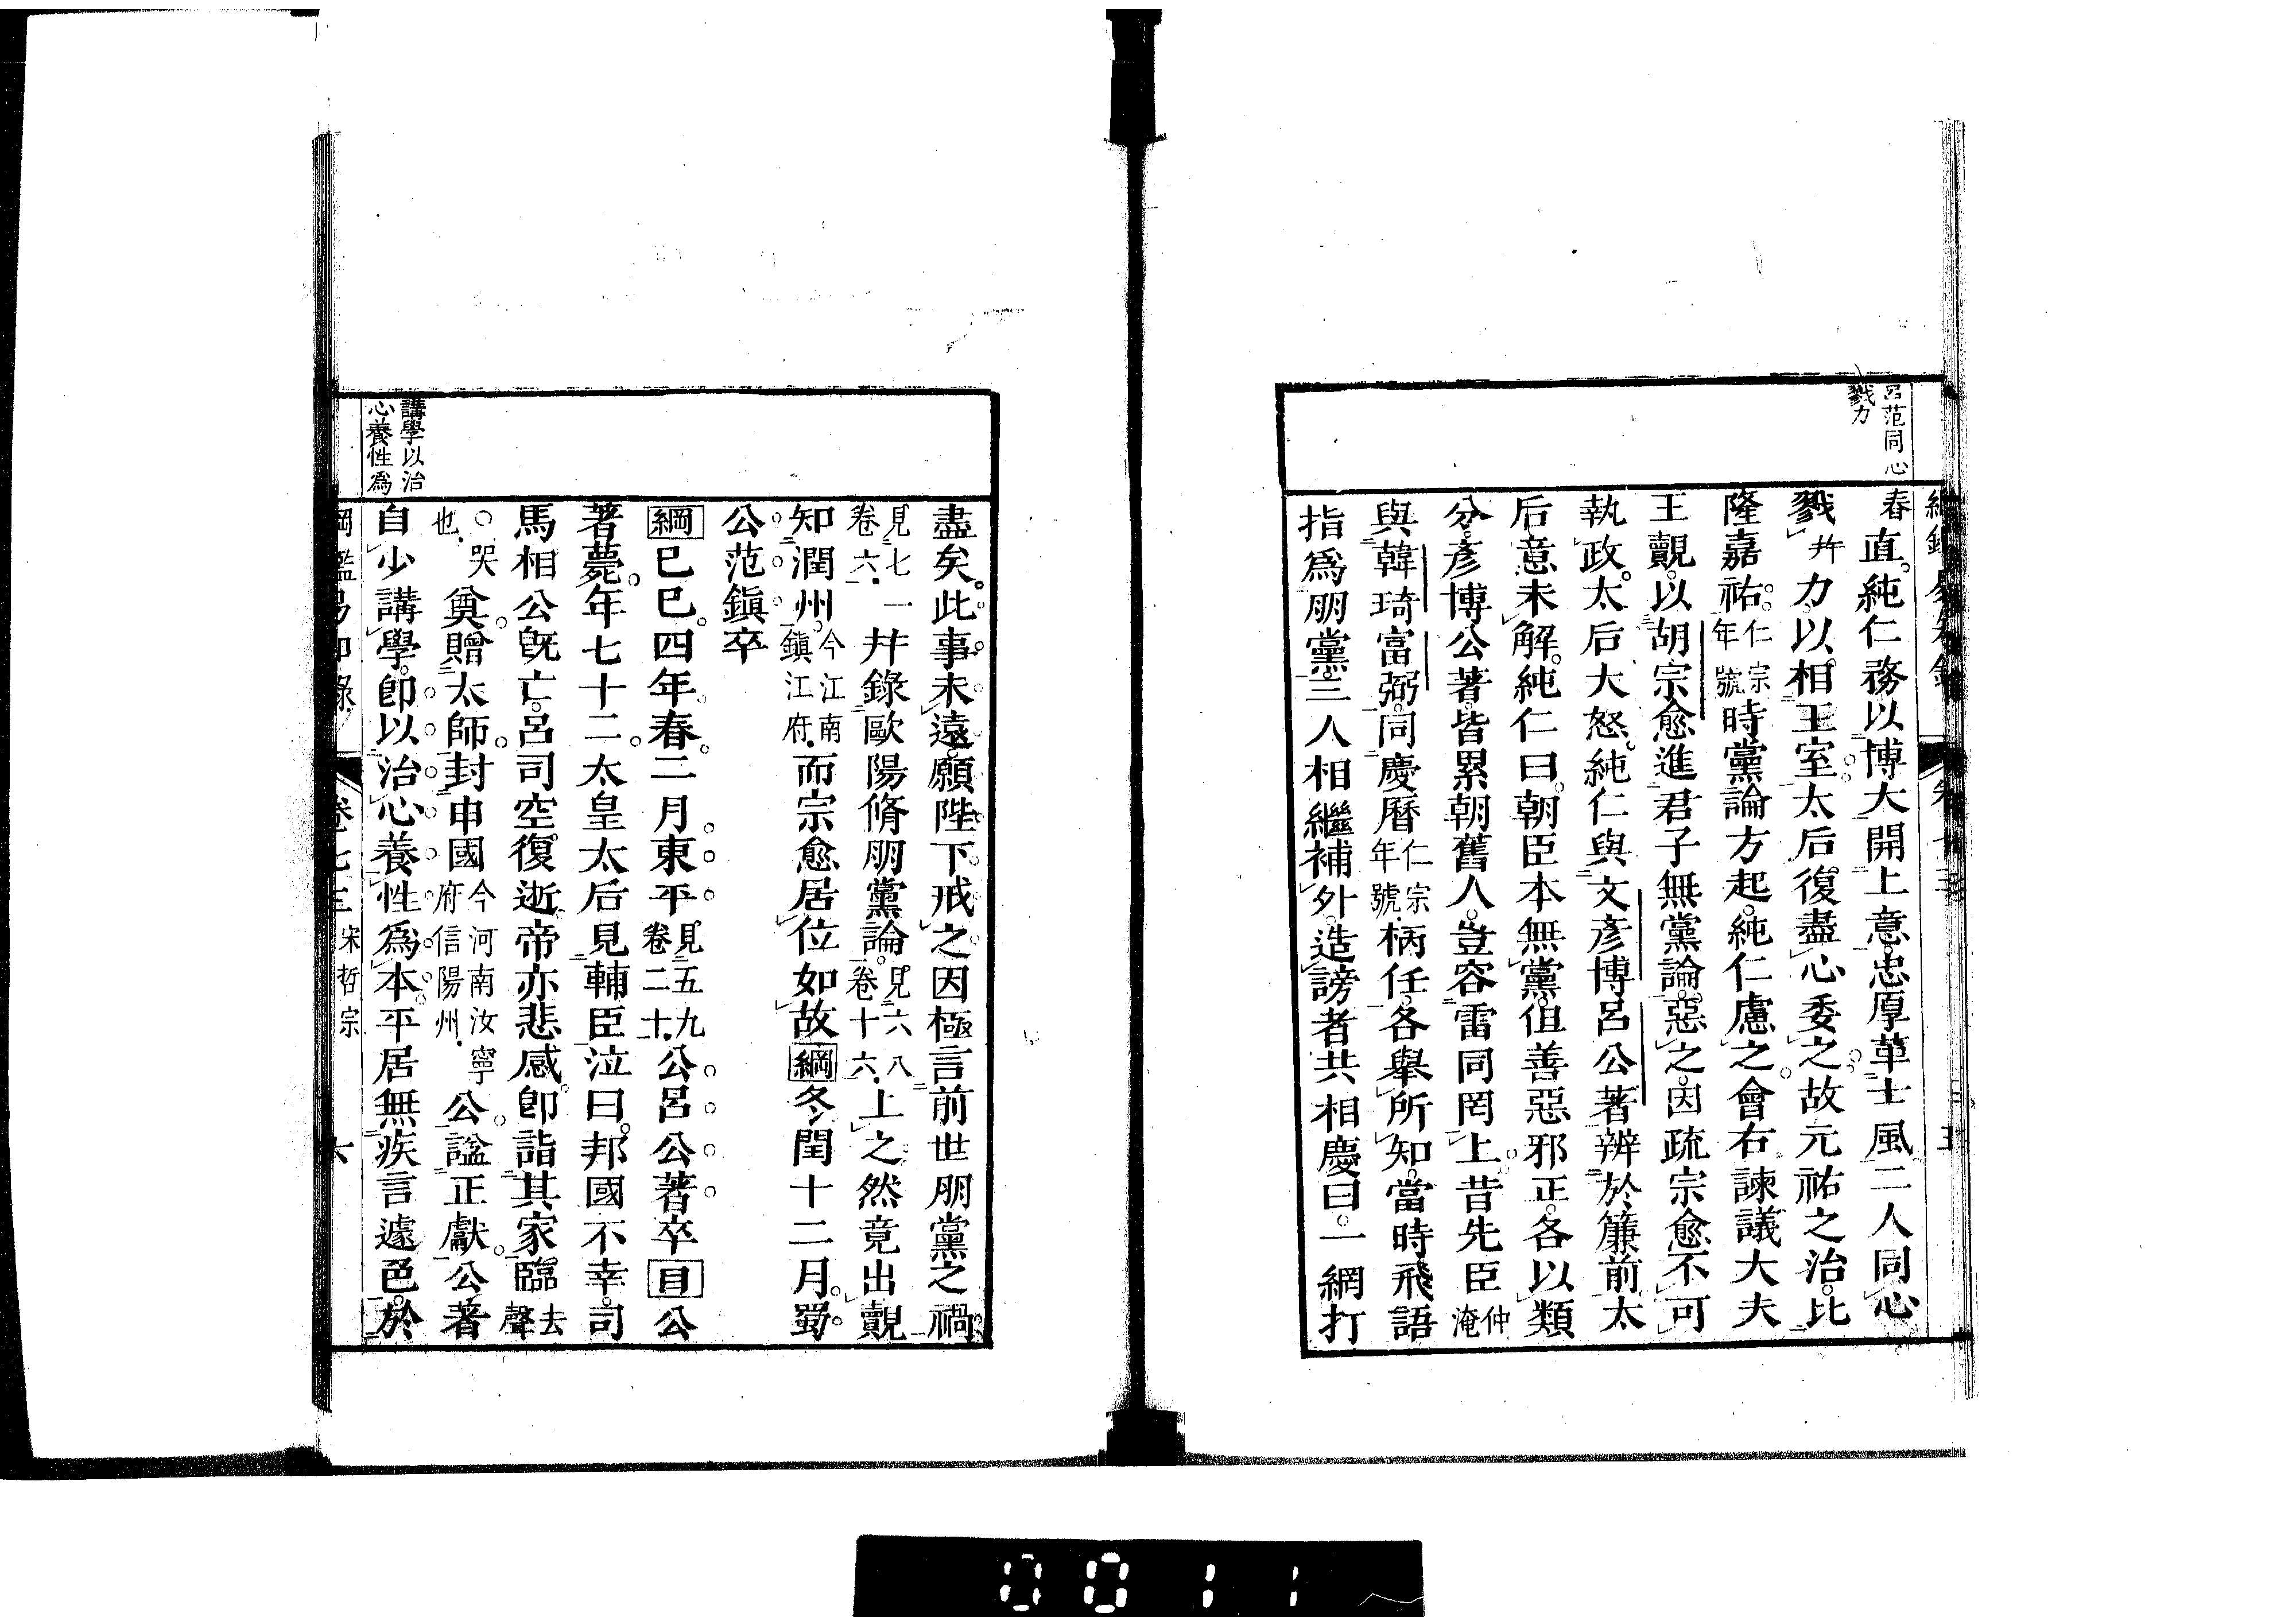 呂范同心
戮力
春直純仁務以博大開上意忠厚革士風二人同心
戮幷力以相王室太后復盡心委之故元祐之治比
隆嘉祐仁宗年號時黨論方起純仁慮之會右諫議大夫
王覿以胡宗愈進君子無黨論惡之因疏宗愈不可
執政太后大怒純仁與文彥博呂公著辨於簾前太
后意未解純仁曰朝臣本無黨但善惡邪正各以類
分彥博公著皆累朝舊人豈容雷同罔上昔先臣仲淹
與韓琦富弼同慶曆仁宗年號柄任各舉所知當時飛語
指爲朋黨三人相繼補外造謗者共相慶曰一網打
盡矣此事未遠願陛下戒之因極言前世朋黨之禍
見七卷六一幷錄歐陽脩朋黨論見六八卷十六上之然竟出覿
知潤州今江南鎭江府而宗愈居位如故綱冬閏十二月蜀
公范鎭卒
綱已巳四年春二月東平見五九卷二十公呂公著卒目公
著薨年七十二太皇太后見輔臣泣曰邦國不幸司
馬相公旣亡呂司空復逝帝亦悲感卽詣其家臨去聲
○哭也奠贈太師封申國今河南汝寧府信陽州公謚正獻公著
自少講學卽以治心養性爲本平居無疾言遽色於
講學以治
心養性爲
綱鑑易知錄 卷七三 宋哲宗 六